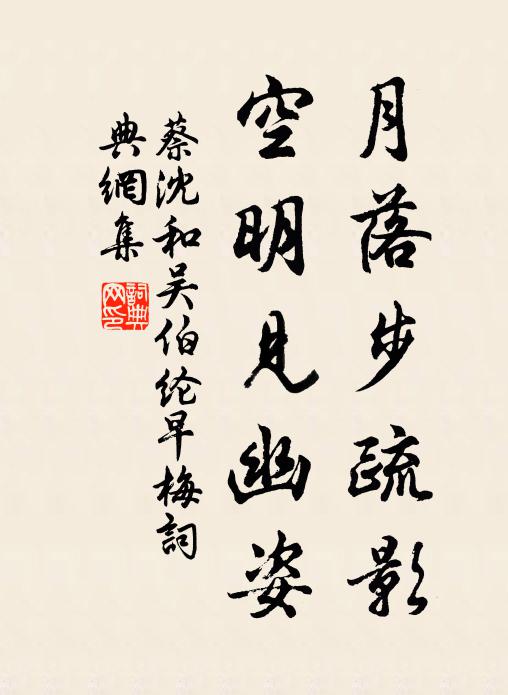 月落步疏影
空明見幽姿
蔡沈和吴伯纶早梅詞
典網集
詞典網印